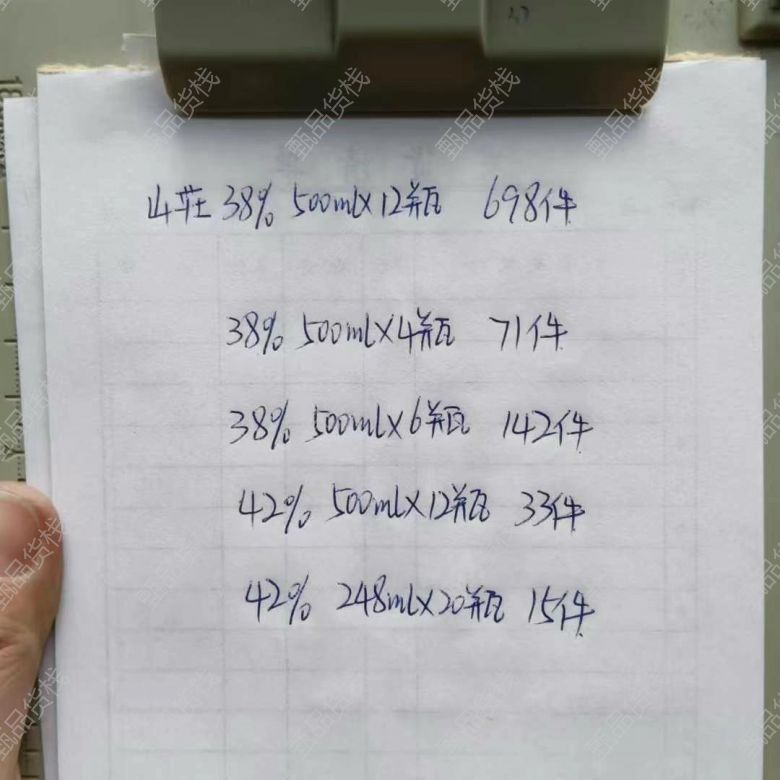 山莊 38% 500ml×12瓶 698件
38% 500ml×4瓶 71件
38% 500ml×6瓶 142件
42% 500ml×12瓶 33件
42% 248ml×20瓶 15件
甄品货栈